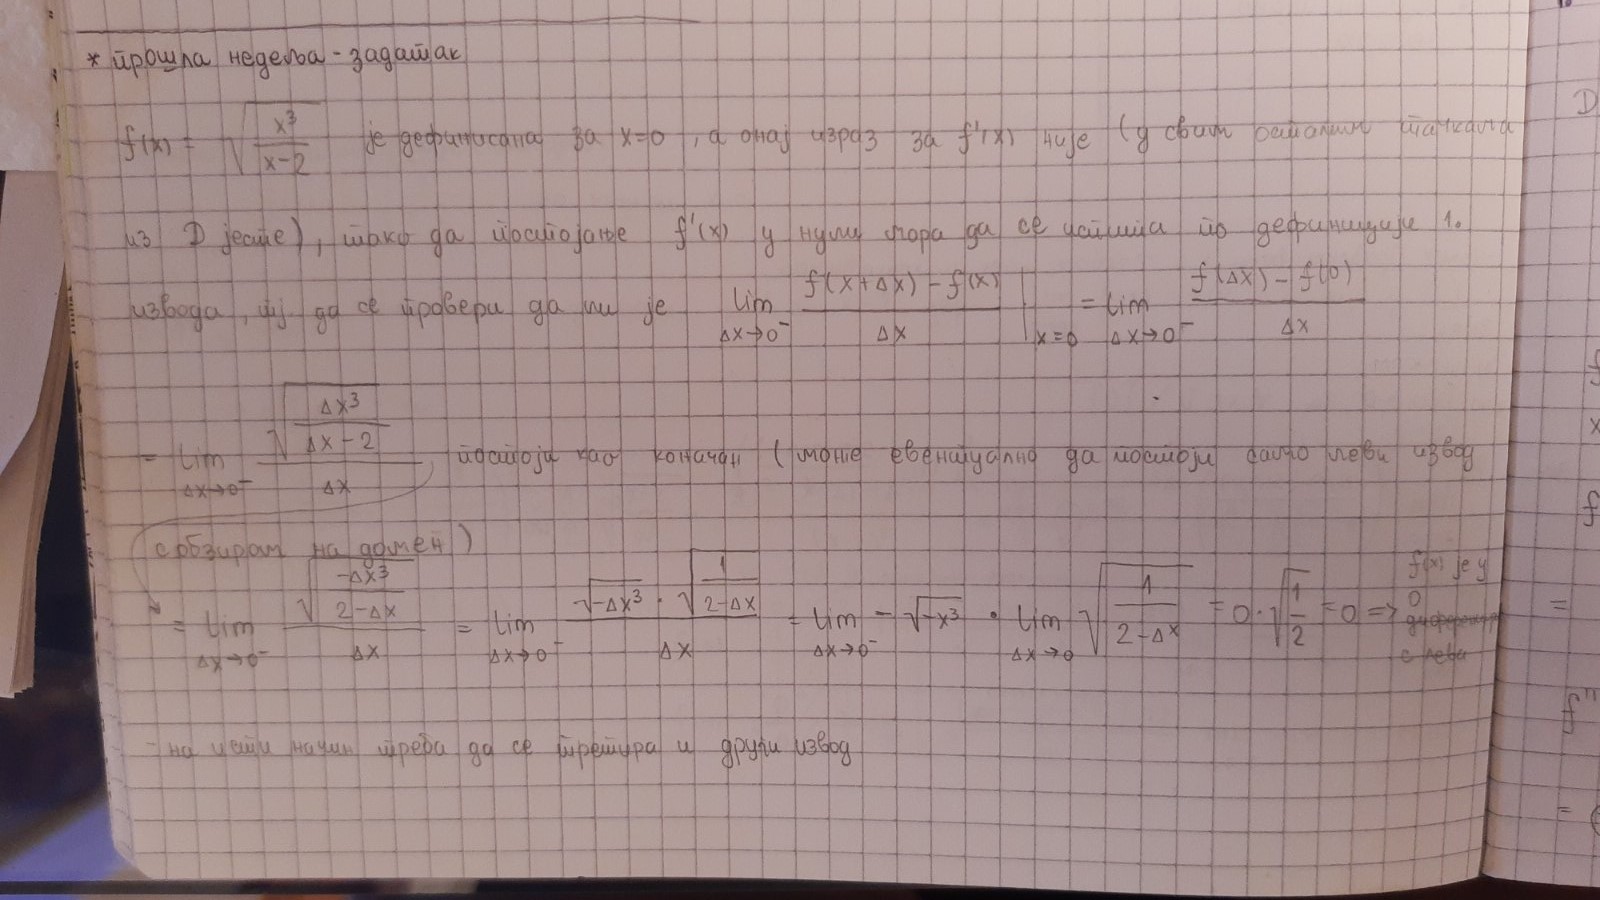 * прошла недеља - задатак
f(x) = √(x³/(x-2)) је дефинисана за x=0, а онај израз за f'(x) није (у свим осталим тачкама
из D јесте), тако да постојање f'(x) у нули мора да се испита по дефиницији 1.
извода, тј да се провери да ли је lim Δx→0⁻ (f(x+Δx) - f(x))/Δx | x=0 = lim Δx→0⁻ (f(Δx) - f(0))/Δx
= lim Δx→0⁻ √(Δx³/(Δx-2))/Δx постоји као коначан (може евентуално да постоји само леви извод
с обзиром на домен)
= lim Δx→0⁻ √(-Δx³/(2-Δx))/Δx = lim Δx→0⁻ (√(-Δx³) · √(1/(2-Δx)))/Δx = lim Δx→0⁻ -√(-x³) · lim Δx→0 √(1/(2-Δx)) = 0·√(1/2) = 0 => f(x) је у 0 с лева
- на исти начин треба да се третира и други извод